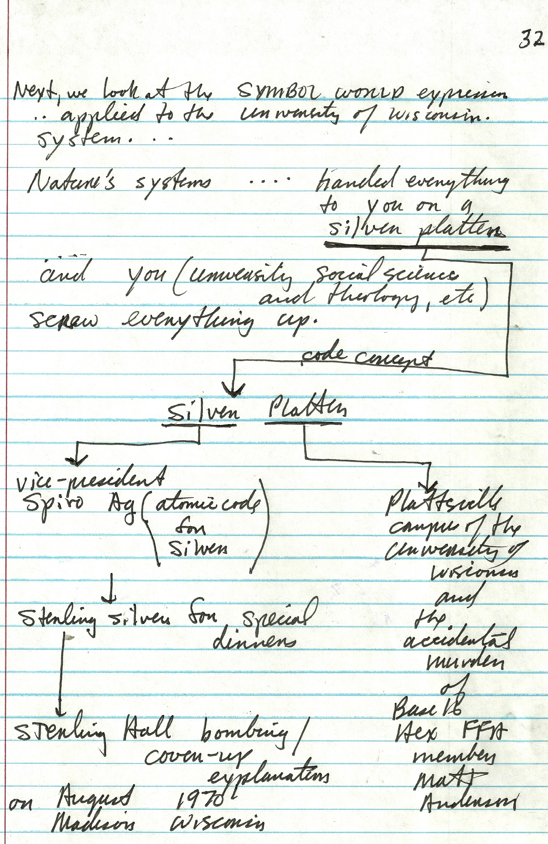 32
Next, we look at the SYMBOL WORLD expression
.. applied to the university of wisconsin.
system. . . .
Nature's systems .... handed everything
to you on a
silver platter
....
and you (university social science
and theology, etc)
screw everything up.
code concept
Silver Platter
vice-president
Spiro Ag (atomic code
for
silver)
Sterling silver for special
dinners
Sterling Hall bombing/
cover-up
explanation
on August 1970
Madison Wisconsin
Platteville
campus of the
university of
wisconsin
and
the
accidental
murder
of
Base 16
Hex FFA
member
Matt
Anderson